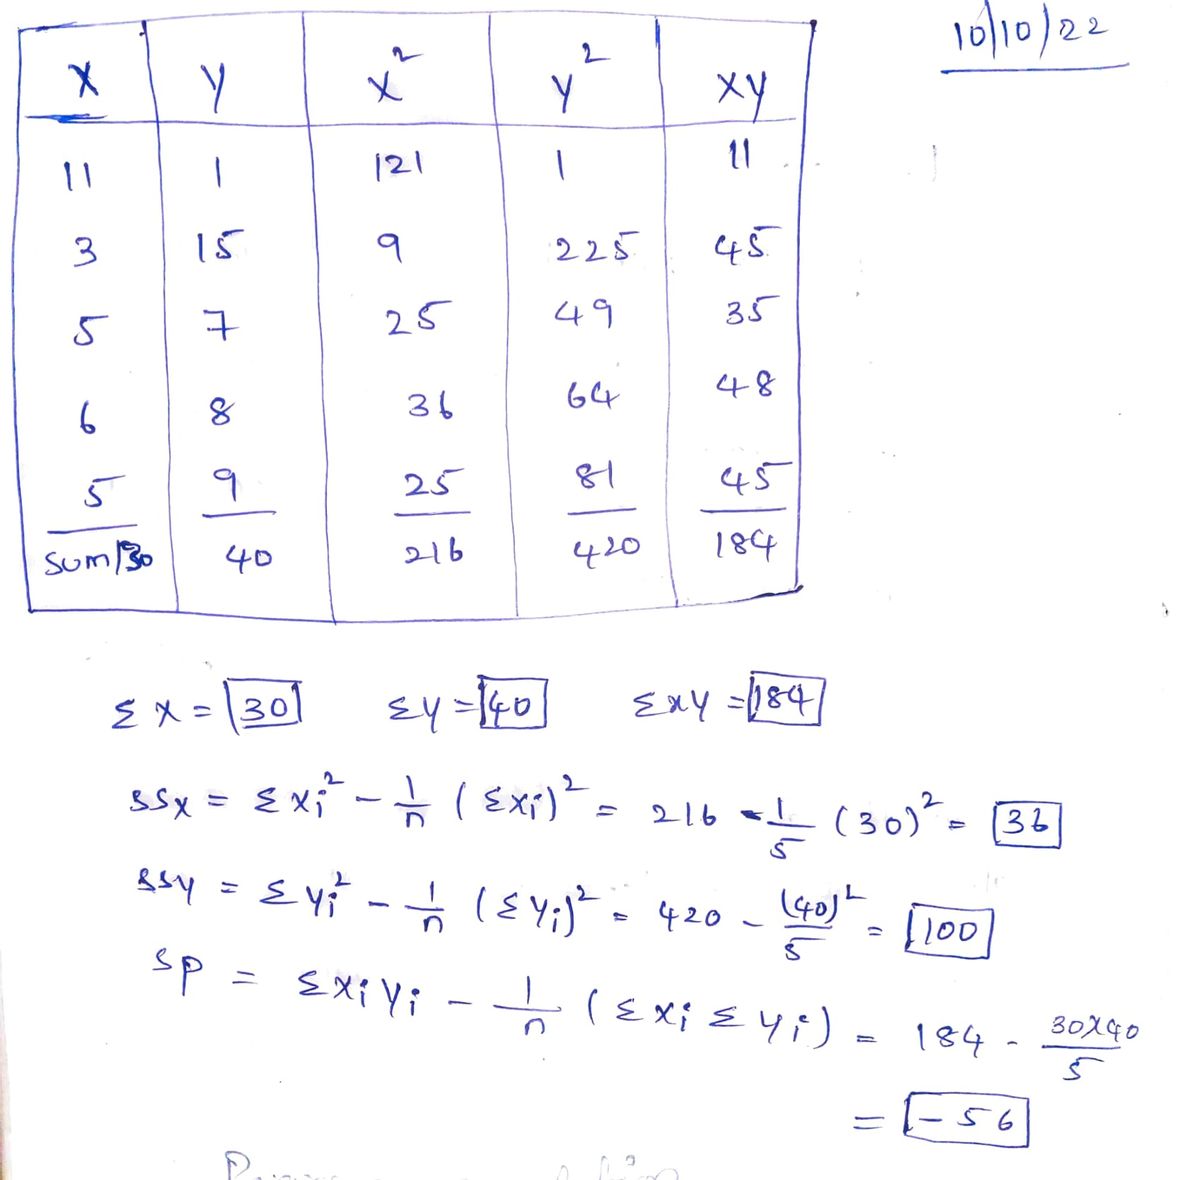 10/10/22
X Y X² Y² XY
11 1 121 1 11
3 15 9 225 45
5 7 25 49 35
6 8 36 64 48
5 9 25 81 45
Sum/30 40 216 420 184
Σ X = 30 ΣY = 40 ΣXY = 184
SSX = Σ Xi² - 1/n (ΣXi)² = 216 - 1/5 (30)² = 36
SSY = Σ Yi² - 1/n (ΣYi)² = 420 - (40)²/5 = 100
SP = ΣXiYi - 1/n (ΣXi ΣYi) = 184 - 30X40/5
= -56